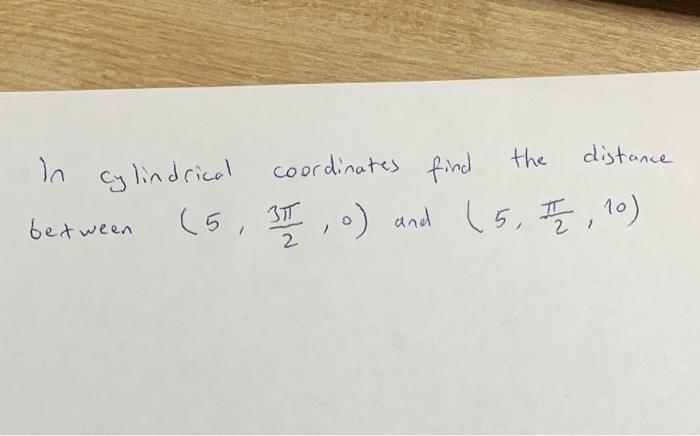 In cylindrical coordinates find the distance
between (5, 3π/2, 0) and (5, π/2, 10)